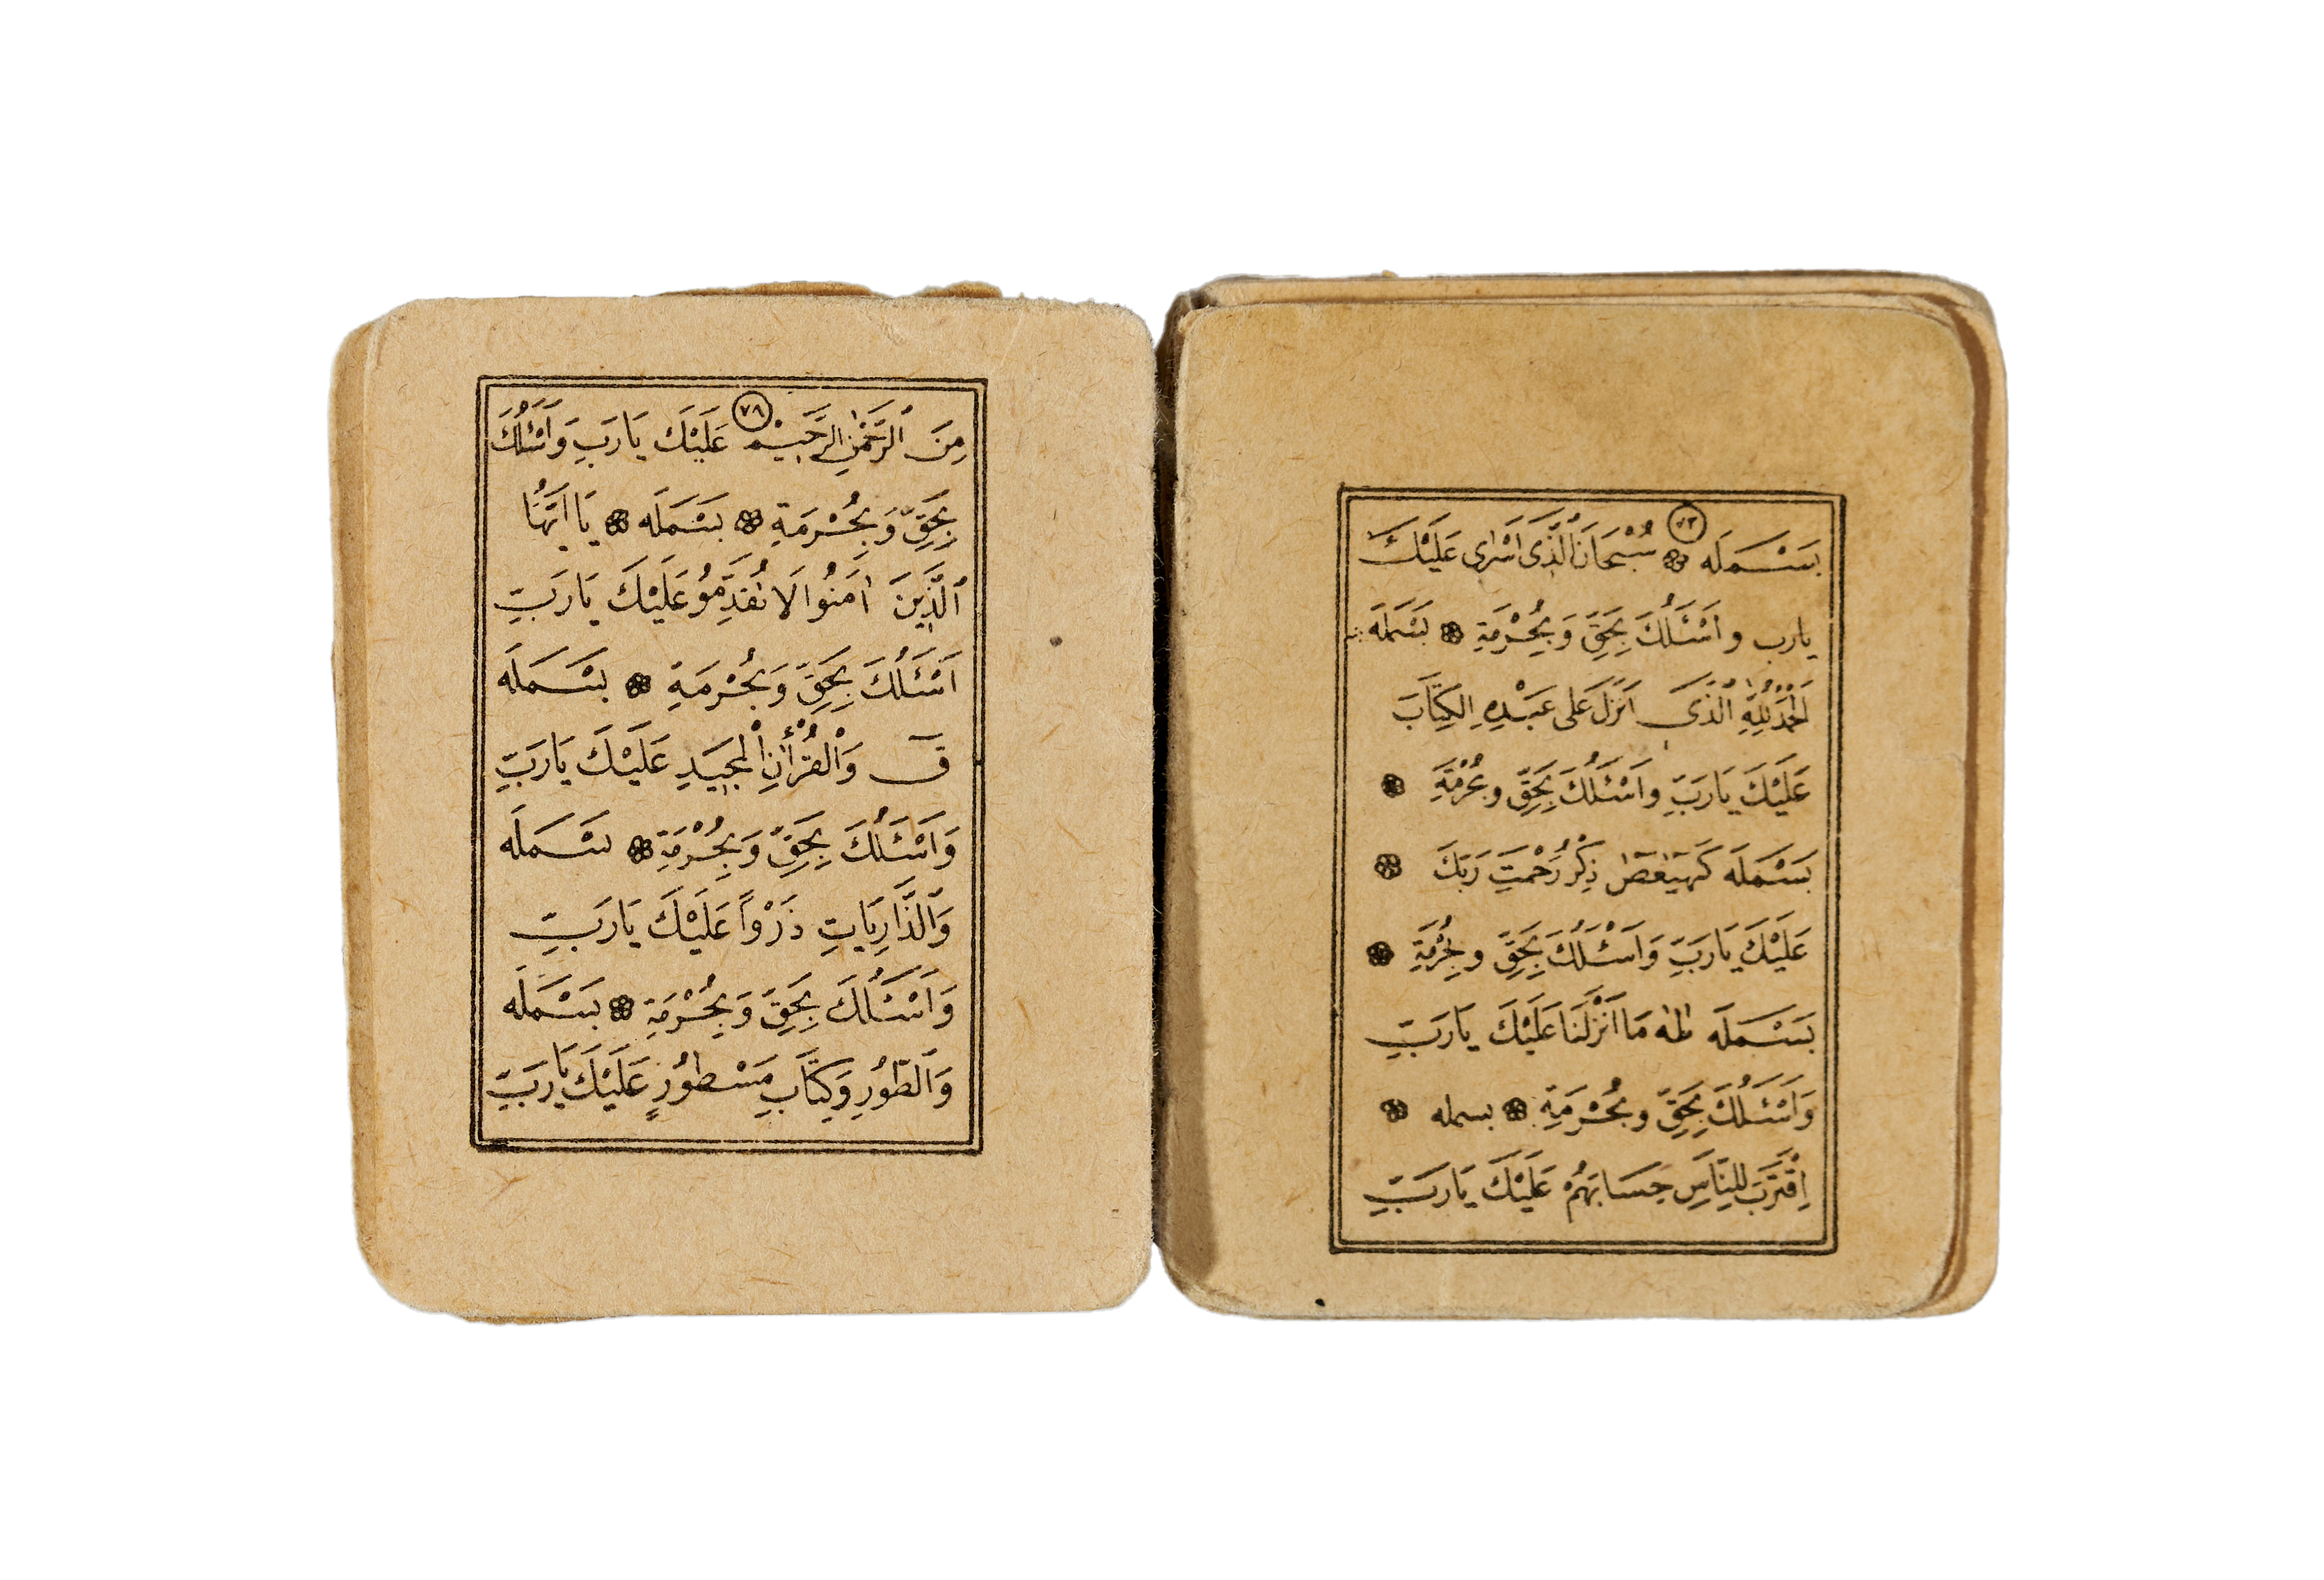 ٧٣
بَسْمَلَه سُبْحَانَ الَّذِى اَسْرٰى عَلَيْكَ
يارب و اَسْئَلُكَ بِحَقِّ وَبِحُرْمَةِ بَسْمَلَه
اَلْحَمْدُ لِلّٰهِ الَّذَى اَنْزَلَ عَلَى عَبْدِهِ الكِتَابَ
عَلَيْكَ يَارَبِّ وَاَسْئَلُكَ بِحَقِّ وبحُرْمَةِ
بَسْمَلَه كٓهٰيٰعٓصٓ ذِكْرُ رَحْمَتِ رَبِّكَ
عَلَيْكَ يَارَبِّ وَاَسْئَلُكَ بِحَقِّ وبِحُرْمَةِ
بَسْمَلَه طٰهٰ مَا اَنْزَلْنَا عَلَيْكَ يَارَبِّ
وَاَسْئَلُكَ بِحَقِّ وبِحُرْمَةِ بسمله
اِقْتَرَبَ لِلنَّاسِ حِسَابَهُمْ عَلَيْكَ يَارَبِّ
٧٩
مِنَ الرَّحْمٰنِ الرَّحِيْمِ عَلَيْكَ يَارَبِّ وَاَسْئَلُكَ
بِحَقِّ وَبِحُرْمَةِ بَسْمَلَه يَا اَيُّهَا
الَّذِينَ اٰمَنُوا لَا تُقَدِّمُو عَلَيْكَ يَارَبِّ
اَسْئَلُكَ بِحَقِّ وَبِحُرْمَةِ بَسْمَلَه
قٓ وَالْقُرْاٰنِ الْمَجِيدِ عَلَيْكَ يَارَبِّ
وَاَسْئَلُكَ بِحَقِّ وَبِحُرْمَةِ بَسْمَلَه
وَالذَّارِيَاتِ ذَرْوًا عَلَيْكَ يَارَبِّ
وَاَسْئَلُكَ بِحَقِّ وَبِحُرْمَةِ بَسْمَلَه
وَالطُّورِ وَكِتَابٍ مَسْطُورٍ عَلَيْكَ يَارَبِّ